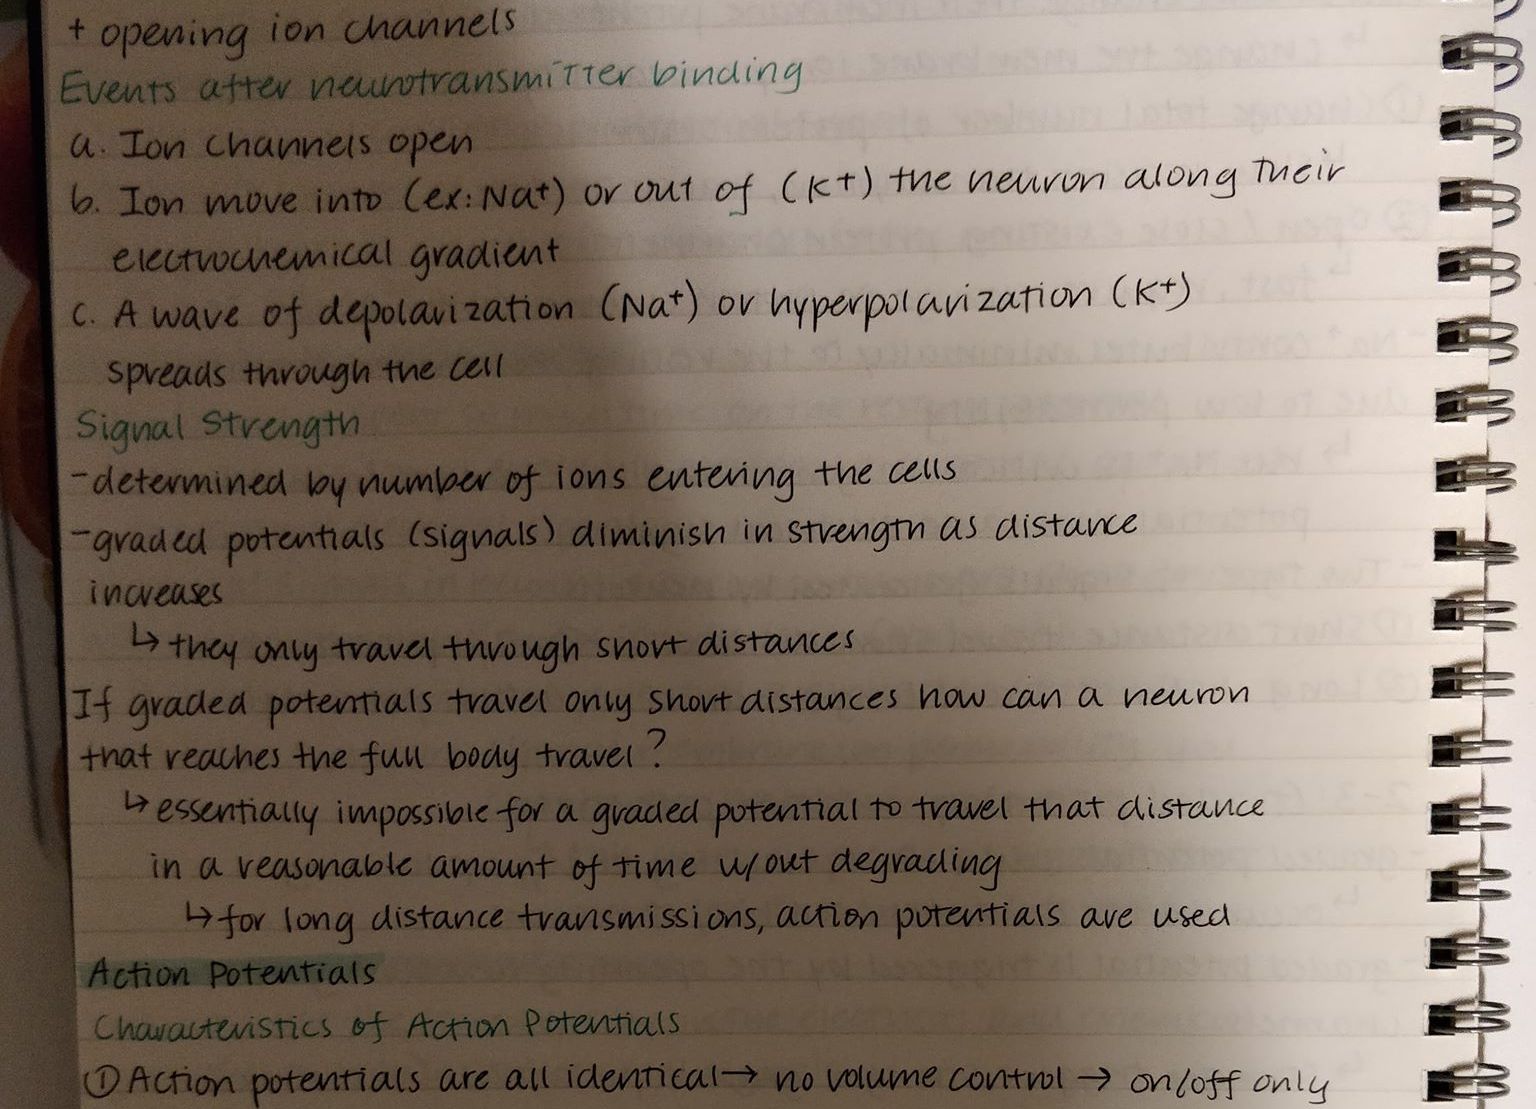 + opening ion channels
Events after neurotransmitter binding
a. Ion channels open
b. Ion move into (ex: Na+) or out of (K+) the neuron along their
electrochemical gradient
c. A wave of depolarization (Na+) or hyperpolarization (K+)
spreads through the cell
Signal Strength
- determined by number of ions entering the cells
- graded potentials (signals) diminish in strength as distance
increases
↳ they only travel through short distances
If graded potentials travel only short distances how can a neuron
that reaches the full body travel?
↳ essentially impossible for a graded potential to travel that distance
in a reasonable amount of time w/out degrading
↳ for long distance transmissions, action potentials are used
Action Potentials
Characteristics of Action Potentials
① Action potentials are all identical → no volume control → on/off only